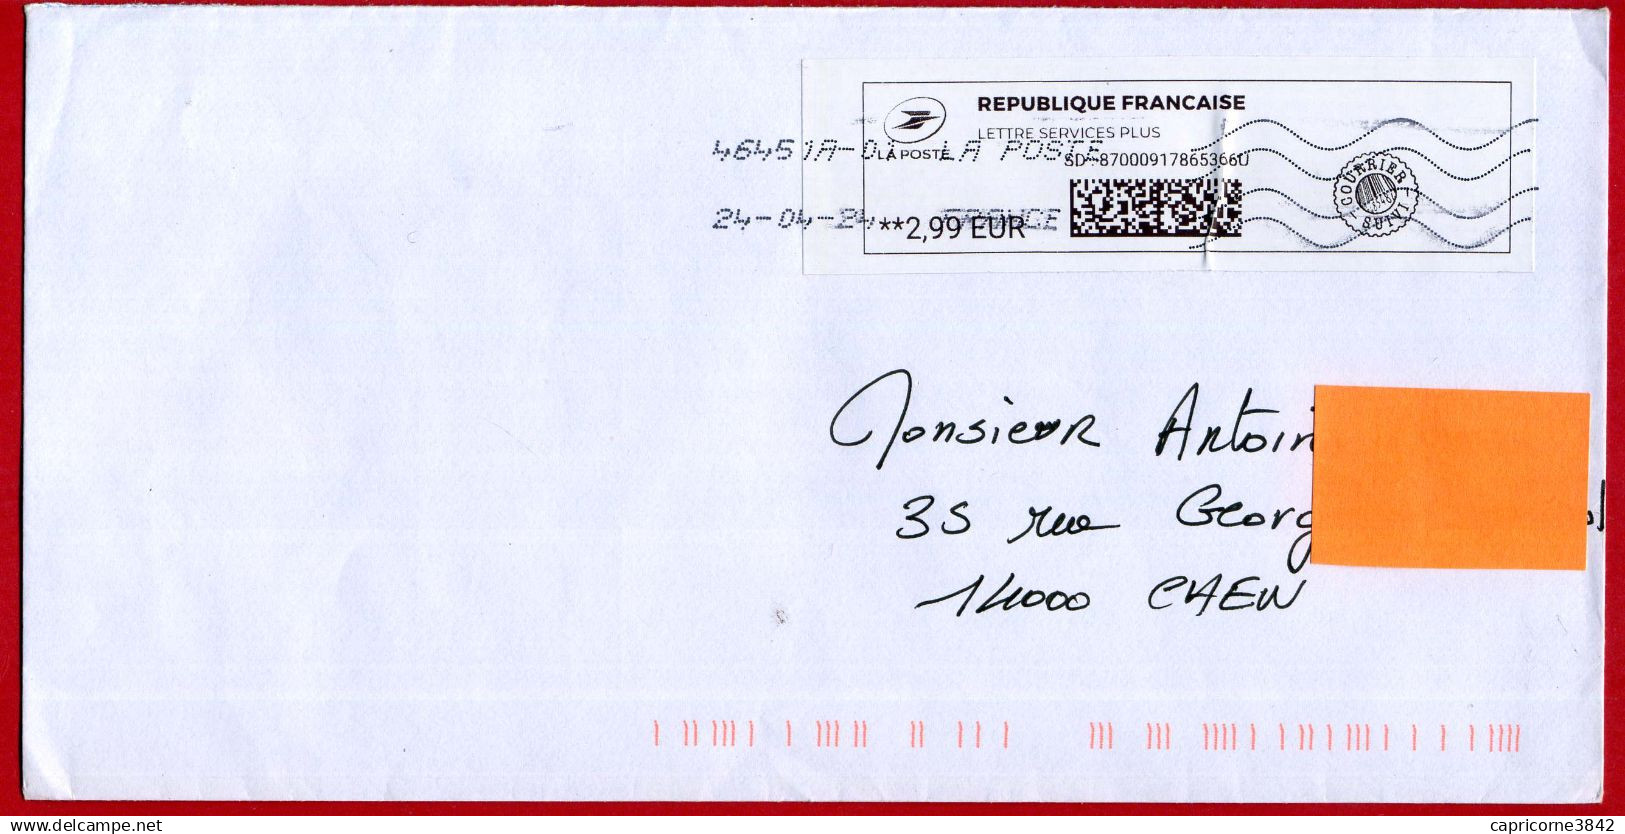 REPUBLIQUE FRANCAISE
LETTRE SERVICES PLUS
LA POSTE
46451A-01 LA POSTE
SD : 87000917865366U
24-04-24 FRANCE
**2,99 EUR
COURRIER SUIVI
Monsieur Antoin
35 rue Georg
14000 CAEN
www.delcampe.net
capricorne3842